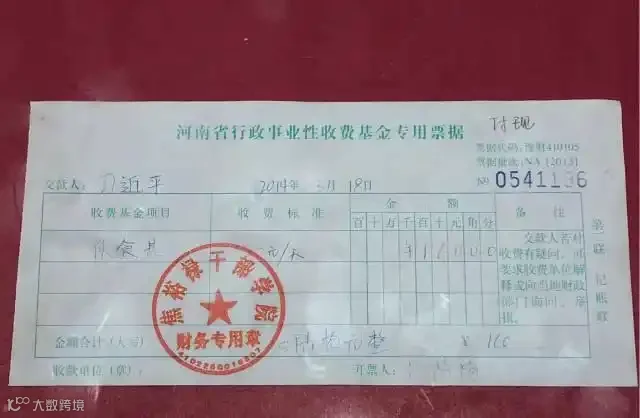 河南省行政事业性收费基金专用票据
付现
票据代码：豫财410105
票据批次：NA [2013]
交款人：习近平 2014年3月18日 № 0541136
收费基金项目 收费标准 金额 备注
百十万千百十元角分
伙食费 元/天 ¥ 1 6 0 0 0
交款人若对
收费有疑问，可
要求收费单位解
释或向当地财政
部门询问、举
报。
第二联 记账联
焦裕禄干部学院
财务专用章
金额合计（大写） 陆拾元整 ¥ 160
收款单位（章）： 开票人：
大数跨境